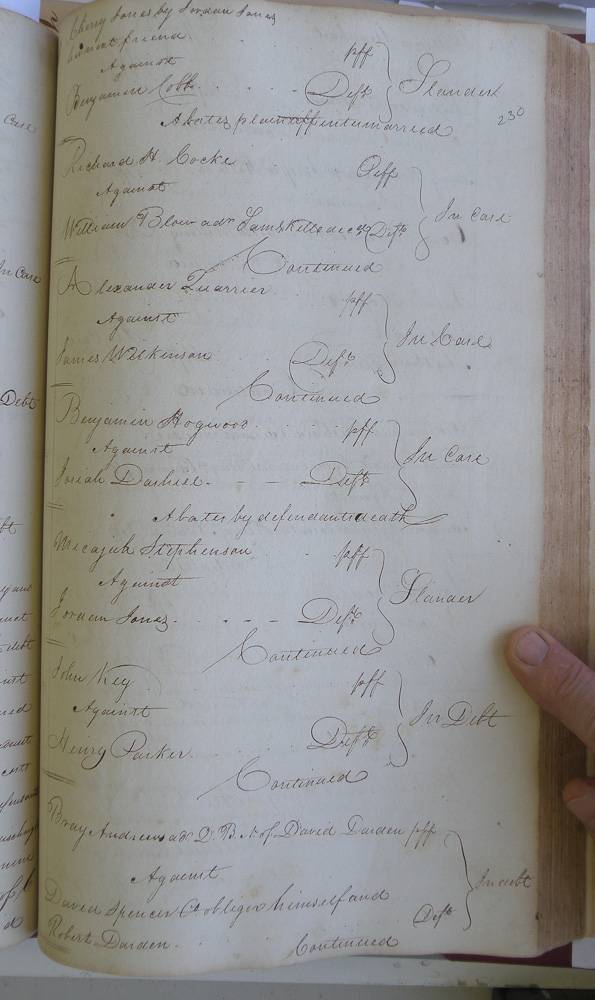 Cherry Jones by Jordan Jones
next friend
pff
Against
Slander
Benjamin Cobb Deft
230
Abates plaintiff intermarried
Richard H Cocke Pff
Against
In Case
William Blow adr Saml Kello decd Deft
Continued
Alexander Quarrier pff
Against
In Case
James Wilkinson Deft
Continued
Benjamin Hogwood pff
Against
In Case
Josiah Dashiel Deft
Abates by defendants death
Micajah Stephenson pff
Against
Slander
Jordan Jones Deft
Continued
John Key pff
Against
In Debt
Henry Parker Deft
Continued
Bray Andrews adr D. B. N of David Darden pff
Against
In debt
David Spencer Ct obliger himself and
Deft
Robert Darden
Continued
Case
In Case
Debt